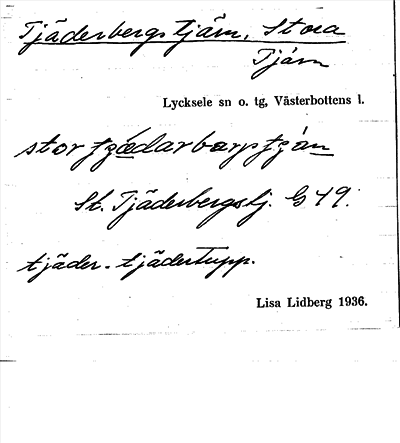 Tjäderbergstjärn, Stora
Tjärn
Lycksele sn o. tg, Västerbottens l.
stor
St. Tjäderbergstj. G 49.
tjäder - tjädertupp.
Lisa Lidberg 1936.